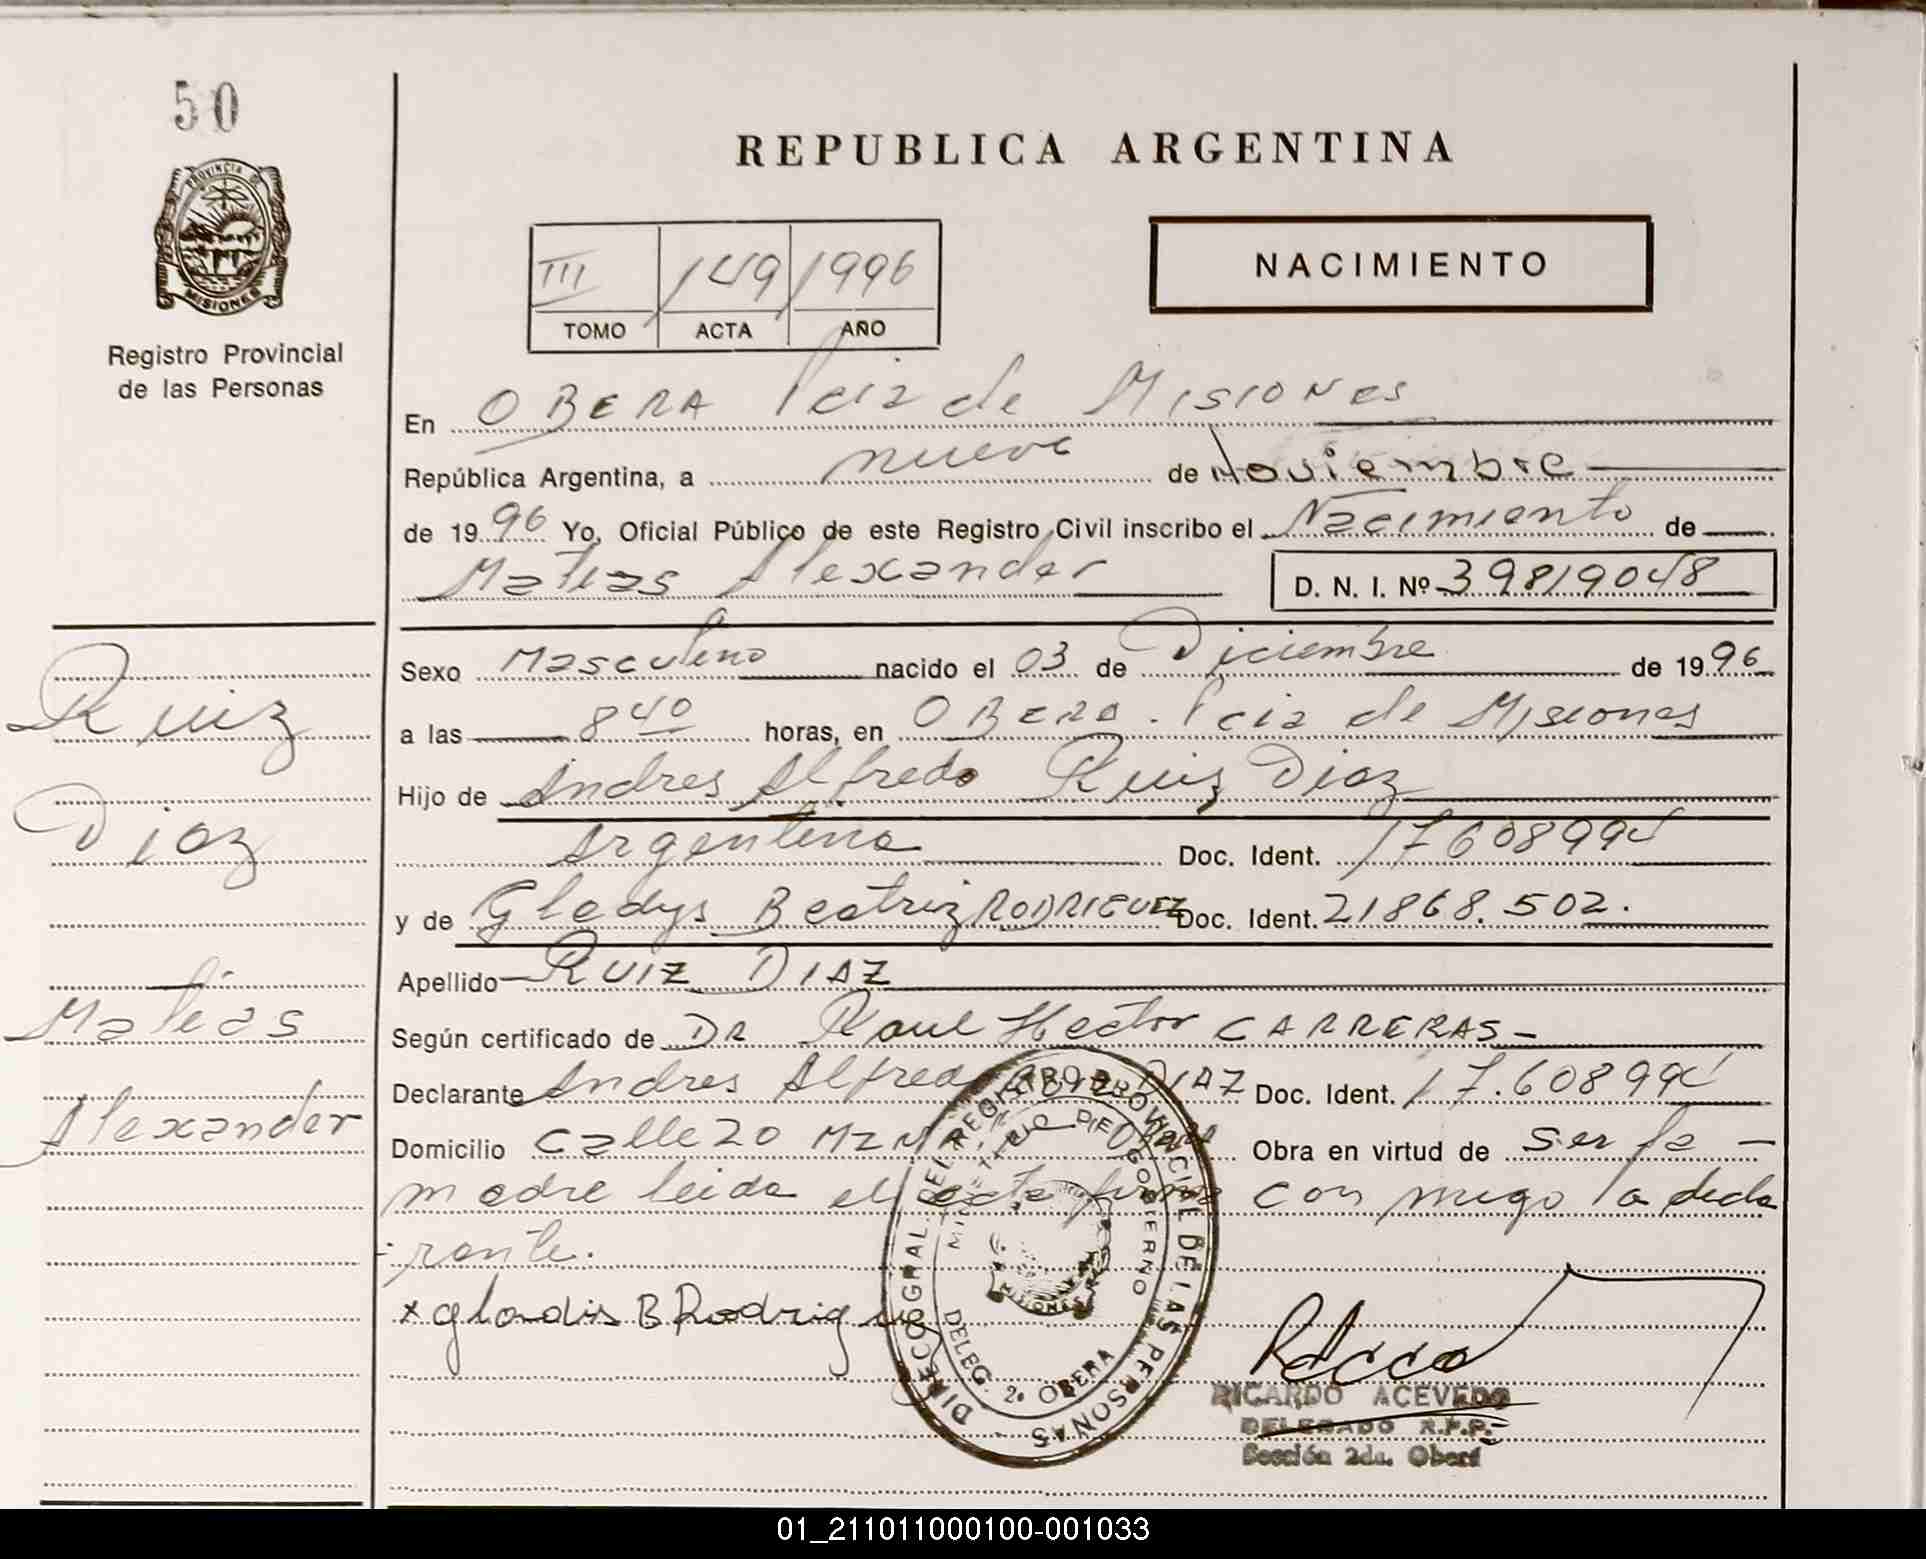 50
PROVINCIA DE
MISIONES
Registro Provincial
de las Personas
REPUBLICA ARGENTINA
III 149 1996
TOMO ACTA AÑO
NACIMIENTO
En OBERA Pcia de Misiones
República Argentina, a nueve de Noviembre
de 1996 Yo, Oficial Público de este Registro Civil inscribo el Nacimiento de
Matias Alexander D. N. I. Nº 39819048
Sexo Masculino nacido el 03 de Diciembre de 1996
a las 8 40 horas, en OBERA. Pcia de Misiones
Hijo de Andres Alfredo Ruiz Diaz
Argentino Doc. Ident. 17608994
y de Gladys Beatriz RODRIGUEZ Doc. Ident. 21868.502.
Apellido RUIZ DIAZ
Según certificado de DR Raul Hector CARRERAS
Declarante Andres Alfredo RUIZ DIAZ Doc. Ident. 17.608994
Domicilio Calle 20 Obra en virtud de ser la
madre leida el acta firma con migo la decla
rante.
x Gladis B Rodrigue
Ruiz
Diaz
Matias
Alexander
DIREC. GRAL. DEL REGISTRO PROVINCIAL DE LAS PERSONAS
MINISTERIO DE GOBIERNO
MISIONES
DELEG. 2ª OBERA
RICARDO ACEVEDO
DELEGADO R.P.P.
Sección 2da. Oberá
01_211011000100-001033